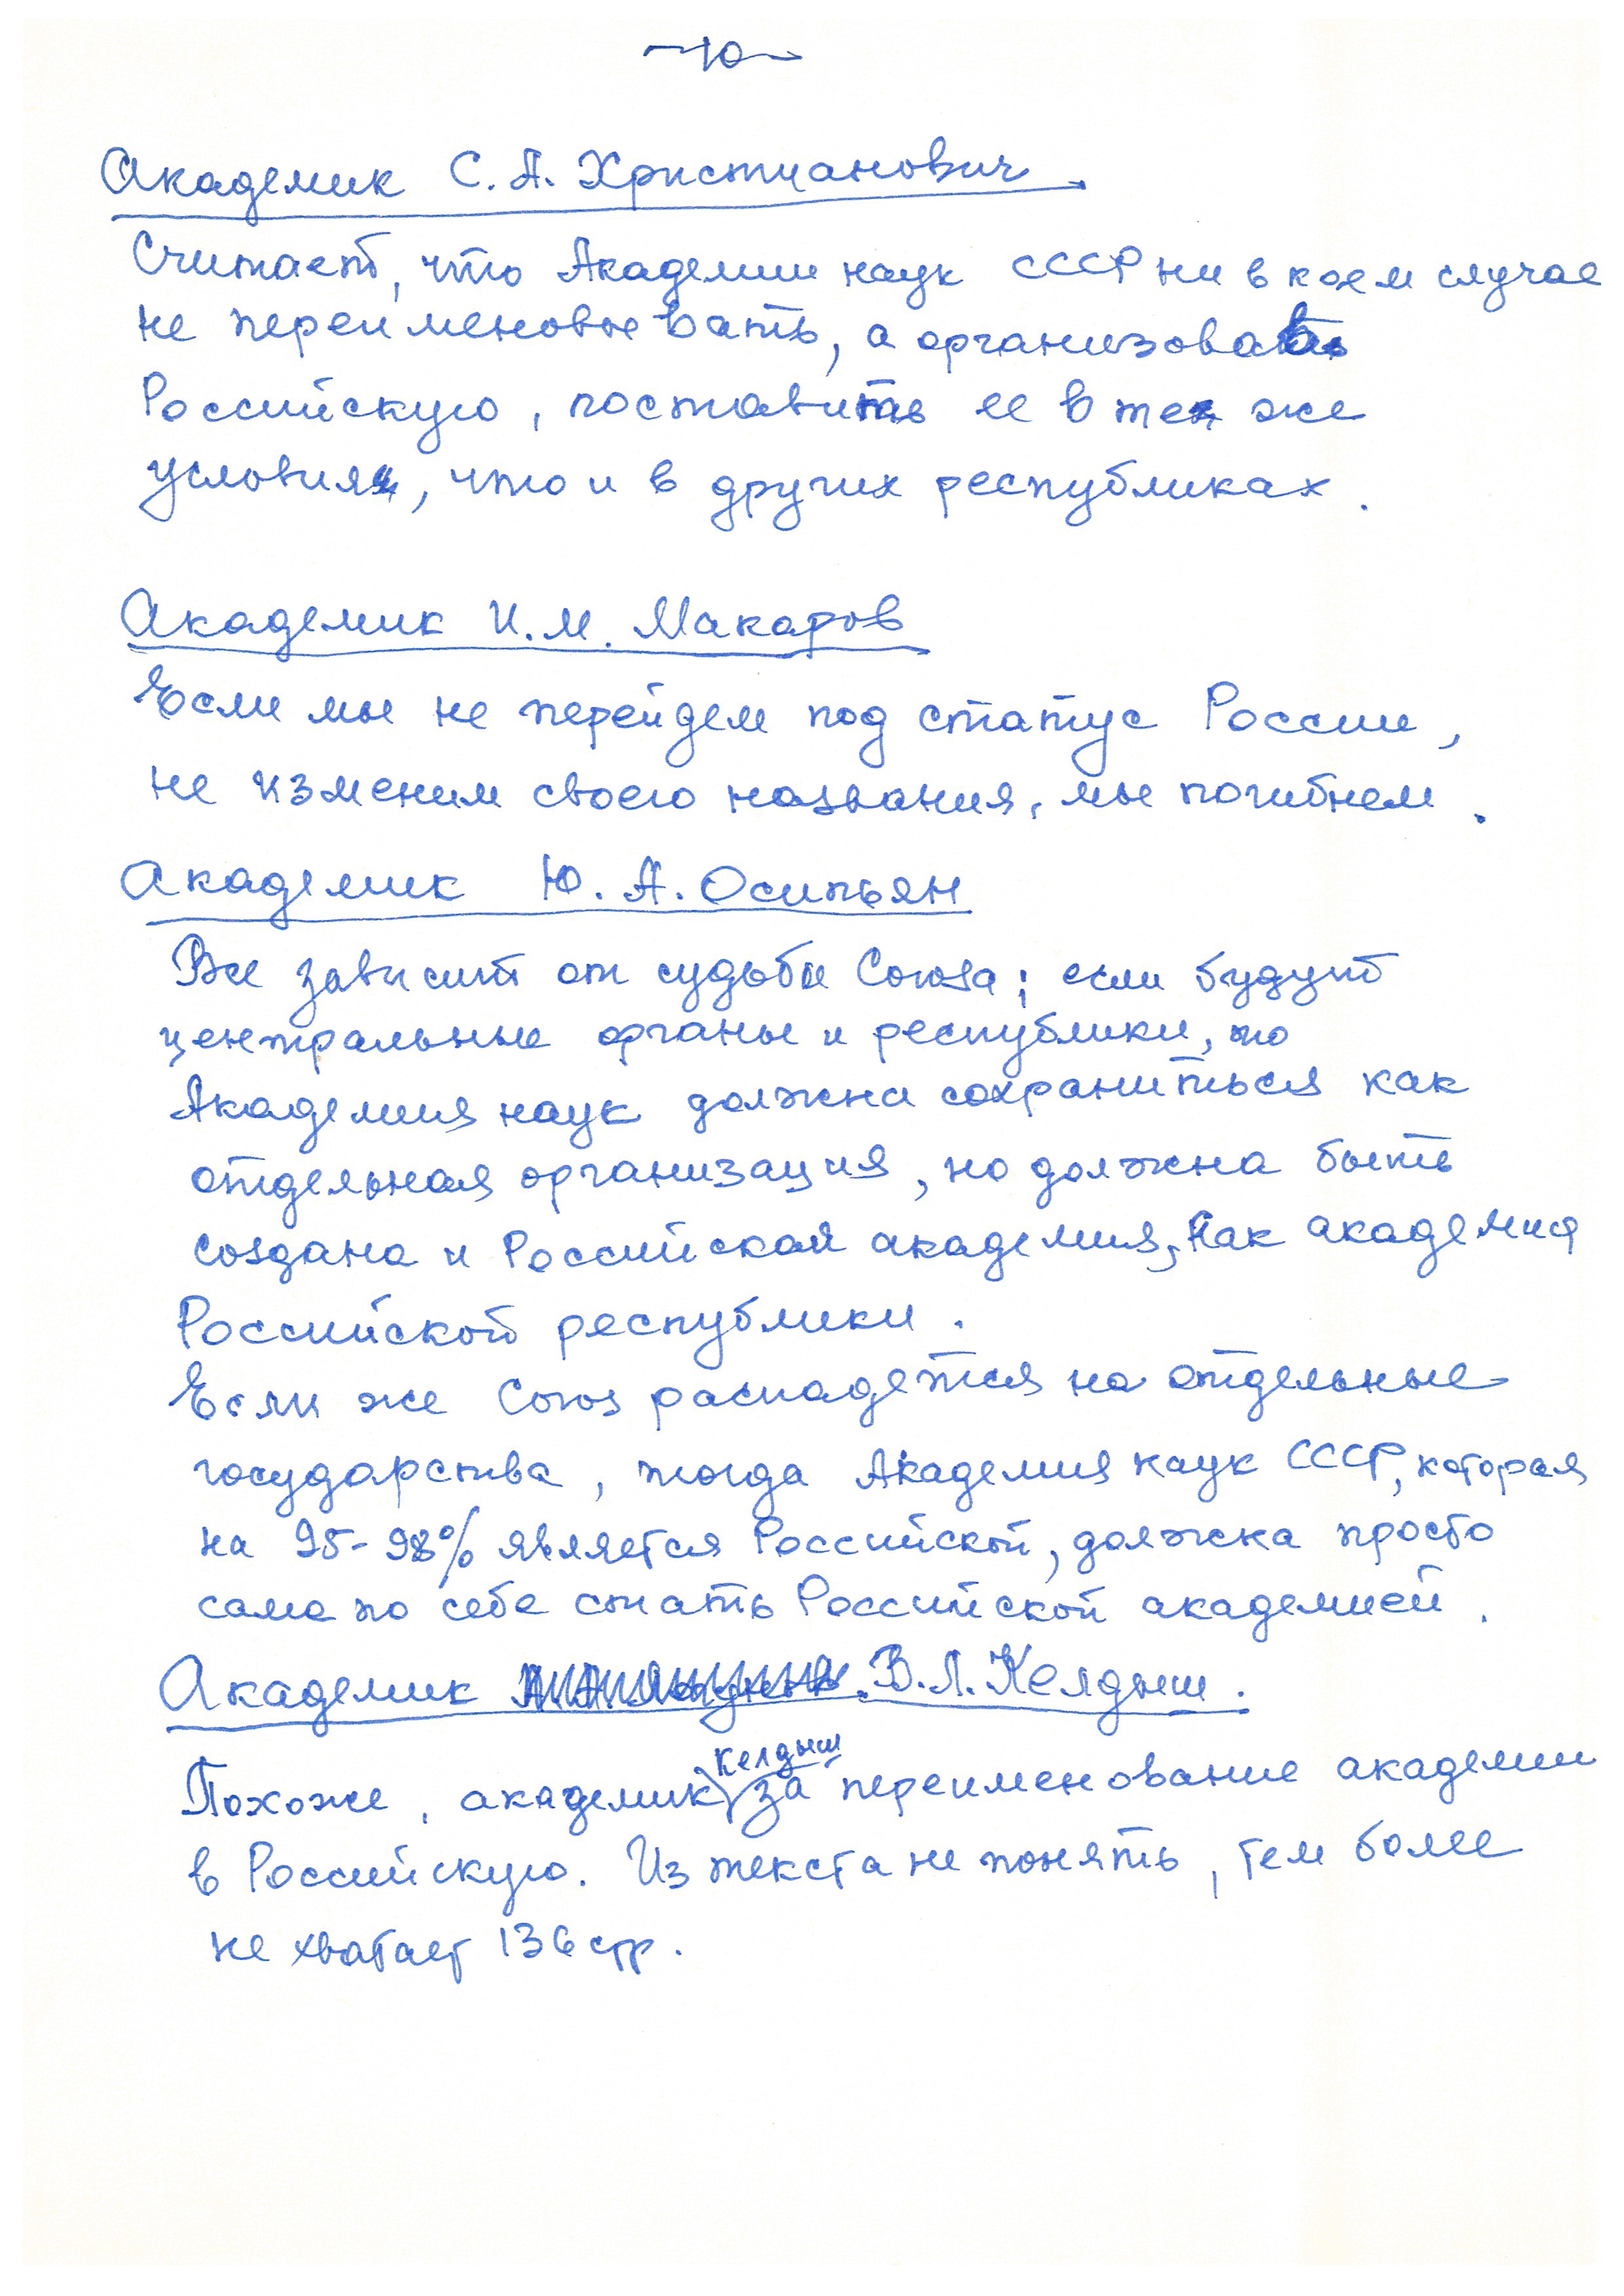 ~10~
Академик С.А. Христианович
Считает, что Академии наук СССР ни в коем случае
не переименовывать, а организовать
Российскую, поставить ее в тех же
условиях, что и в других республиках.
Академик И.М. Макаров
Если мы не перейдем под статус России,
не изменим своего названия, мы погибнем.
Академик Ю.А. Осипьян
Все зависит от судьбы Союза; если будут
центральные органы и республики, то
Академия наук должна сохраниться как
отдельная организация, но должна быть
создана и Российская академия, как академия
Российской республики.
Если же Союз распадется на отдельные
государства, тогда Академия наук СССР, которая
на 95-98% является Российской, должна просто
сама по себе стать Российской академией.
Академик В.Л. Келдыш.
Келдыш
Похоже, академик за переименование академии
в Российскую. Из текста не понять, тем более
не хватает 136 стр.